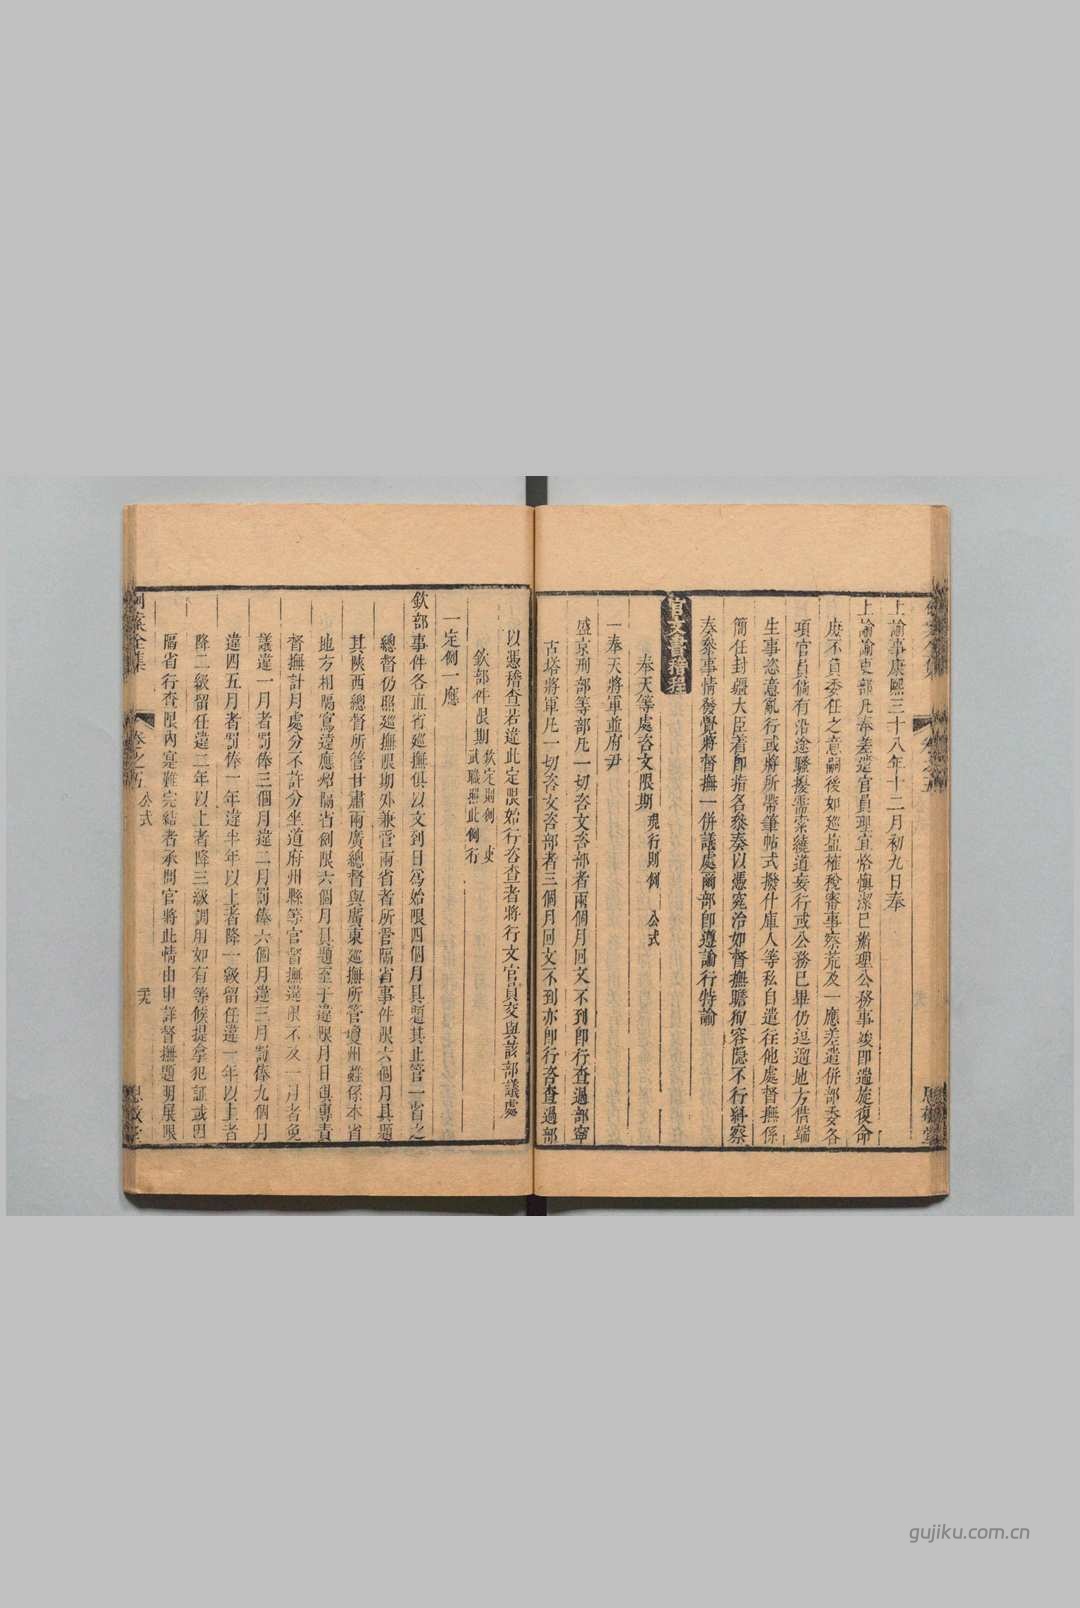 上諭事康熙三十八年十二月初九日奉
上諭諭吏部凡奉差遣官員理宜恪愼潔已辦理公務事竣即遄旋復命
庶不負委任之意嗣後如廵盐榷稅審事察荒及一應差遣併部委各
項官員倘有沿途騷擾需索繞道妄行或公務已畢仍逗遛地方借端
生事恣意亂行或將所帶筆帖式撥什庫人等私自遣往他處督撫係
簡任封疆大臣着即指名叅奏以憑究治如督撫瞻狥容隱不行糾察
奏叅事情發覺將督撫一併議處爾部即遵諭行特諭
官文書稽程
奉天等處咨文限期 現行則例 公式
一奉天將軍並府尹
盛京刑部等部凡一切咨文咨部者兩個月回文不到即行查過部寧
古塔將軍凡一切咨文咨部者三個月回文不到亦即行咨查過部
以憑稽查若違此定限始行咨查者將行文官員交與該部議處
欽部件限期 欽定則例 吏
武職照此例行
一定例一應
欽部事件各直省廵撫俱以文到日爲始限四個月具題其止管一省之
總督仍照廵撫限期外兼管兩省者所管隔省事件限六個月具題
其陝西總督所管甘肅兩廣總督與廣東廵撫所管瓊州雖係本省
地方相隔寫遠應照隔省例限六個月具題至于違限月日俱專責
督撫計月處分不許分坐道府州縣等官督撫違限不及一月者免
議違一月者罰俸三個月違二月罰俸六個月違三月罰俸九個月
違四五月者罰俸一年違半年以上者降一級留任違一年以上者
降二級留任違二年以上者降三級調用如有等候提拿犯証或因
隔省行查限內寔難完結者承問官將此情由申詳督撫題明展限
例案全集 卷之五 公式 二十九 思敬堂